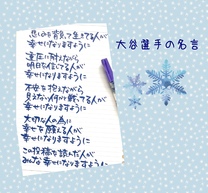 悲しみを背負って生きてる人が
幸せになりますように
重圧に耐えながら
明日を信じてる人が
幸せになりますように
不安を抱えながら
見えない何かと戦ってる人が
幸せになりますように
大切な人の為に
幸せを願える人が
幸せになりますように
この投稿を読んだ人が
みんな幸せになりますように
大谷選手の名言